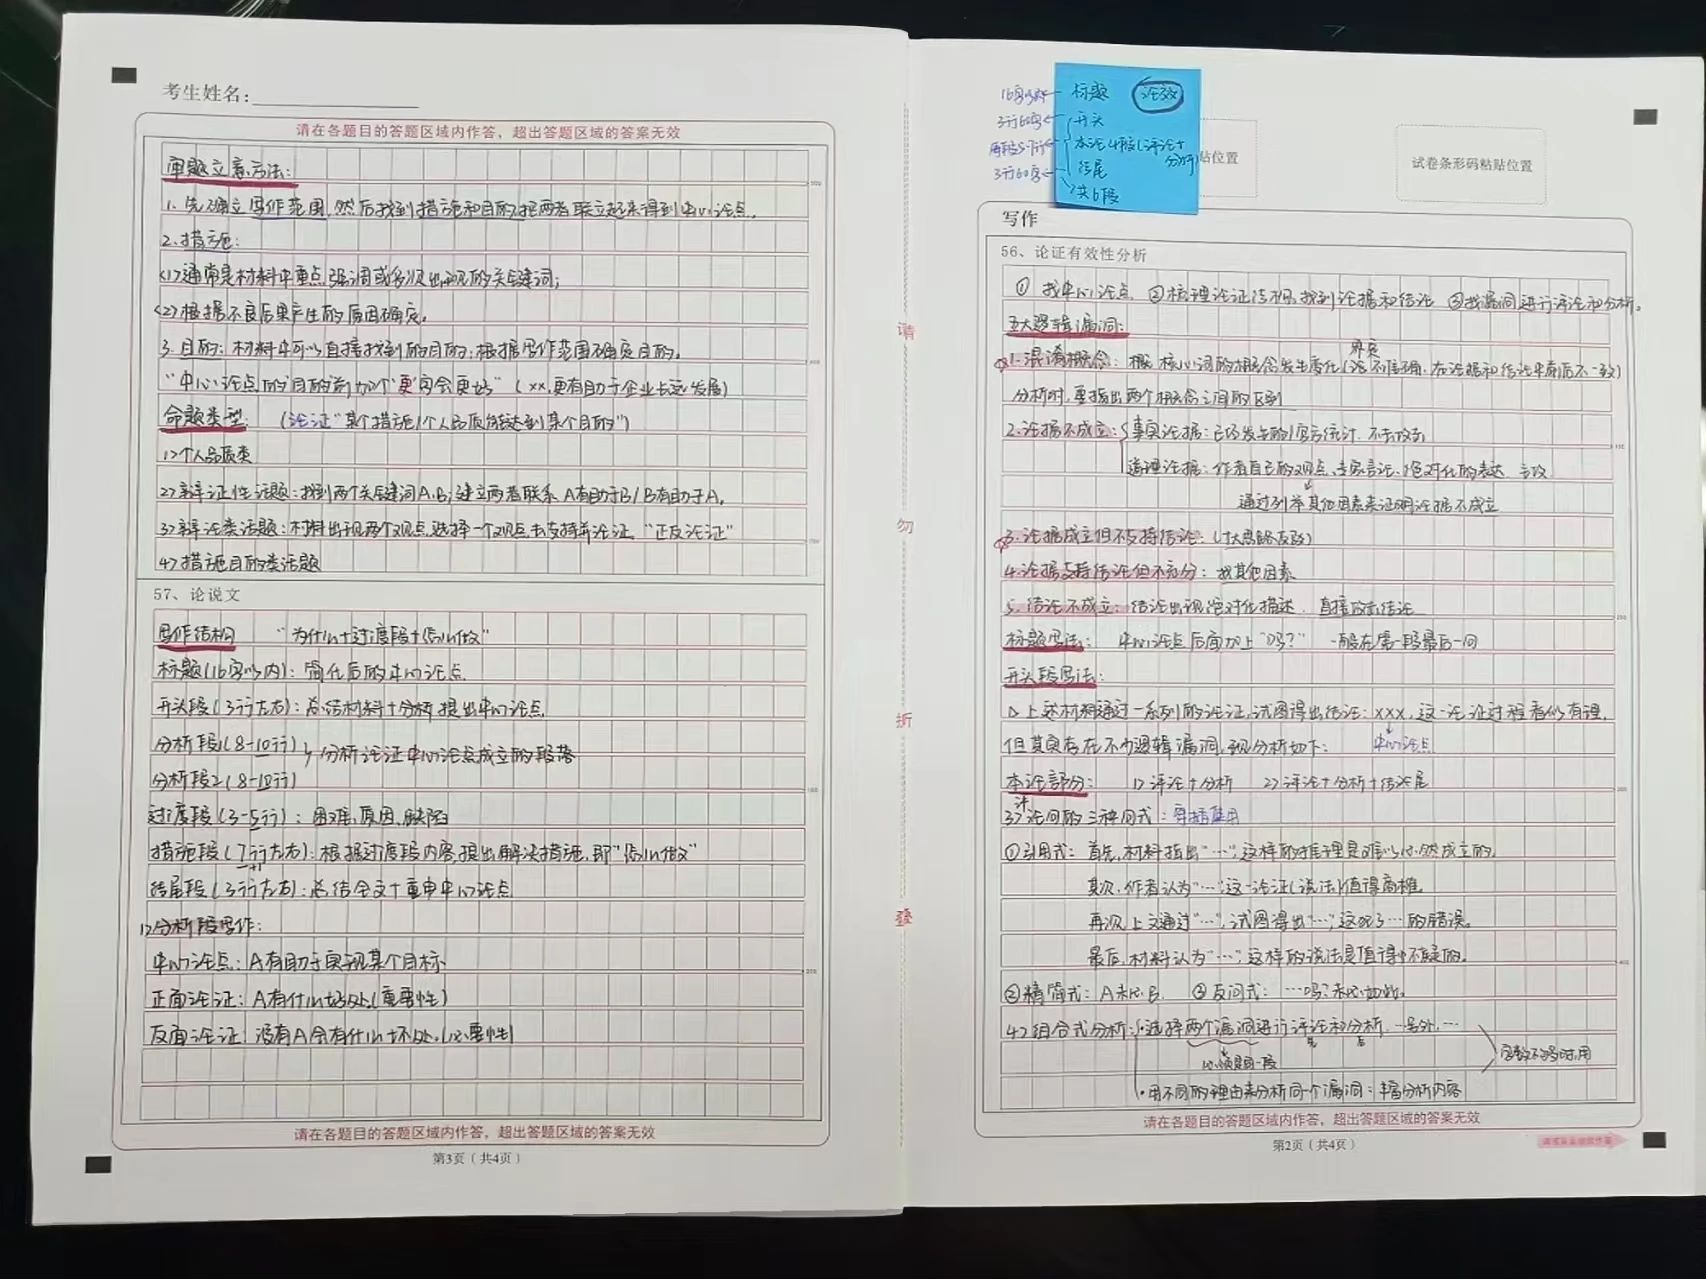 考生姓名:
请在各题目的答题区域内作答，超出答题区域的答案无效
审题立意方法:
1. 先确立写作范围,然后找到措施和目的,把两者联立起来得到中心论点.
2.措施:
<1>通常是材料中重点强调或多次出现的关键词;
<2>根据不良后果产生的原因确定.
3.目的:材料中可以直接找到的目的;根据写作范围确定目的.
"中心论点的目的前加个"更"字会更好"(xx,更有助于企业长远发展)
命题类型: (论证"某个措施/个人品质能达到某个目的")
1>个人品质类
2>辩证性话题:找到两个关键词A.B;建立两者联系 A有助于B/B有助于A.
3>辩论类话题:材料出现两个观点,选择一个观点去支持并论证 "正反论证"
4>措施目的类话题
57、论说文
写作结构 "为什么+过渡段+怎么做"
标题(16字以内):简化后的中心论点.
开头段(3行左右):总结材料+分析 提出中心论点
分析段1(8-10行) 分析论证中心论点成立的段落
分析段2(8-10行)
过度段(3-5行):困难,原因,缺陷
措施段(7行左右):根据过渡段内容提出解决措施,即"怎么做"
结尾段(3行左右):总结全文+重申中心论点
1>分析段写作:
中心论点:A有助于实现某个目标.
正面论证:A有什么好处(重要性)
反面论证:没有A会有什么坏处.(必要性)
请在各题目的答题区域内作答，超出答题区域的答案无效
第3页（共4页）
请
勿
折
叠
标题 论效
3行60字 开头
本论4段(评论+
分析)
3行60字 结尾
共6段
贴位置
试卷条形码粘贴位置
写作
56、论证有效性分析
① 找中心论点 ②梳理论证结构,找到论据和结论 ③找漏洞进行评论和分析。
五大逻辑漏洞:
1.混淆概念: 核心词的概念发生变化(界定不准确,在论据和结论中前后不一致)
分析时,要指出两个概念之间的区别
2.论据不成立:{事实论据:已经发生的/官方统计.不去攻击
道理论据:作者自己的观点、专家言论、绝对化的表达 主攻
通过列举其他因素来证明论据不成立
3.论据成立但不支持结论:
4.论据支持结论但不充分:找其他因素
5.结论不成立:结论出现绝对化描述.直接攻击结论
标题写法: 中心论点后面加上"吗?" 一般在第一段最后一问
开头段写法:
▷上述材料通过一系列的论证,试图得出结论:xxx,这一论证过程看似有理,
但其实存在不少逻辑漏洞,现分析如下: 中心论点
本论部分: 1>评论+分析 2>评论+分析+结论尾
3>评论句的三种句式:穿插使用
①引用式: 首先,材料指出"…",这样的推理是难以必然成立的.
其次,作者认为"…",这一论证(说法)值得商榷.
再次,上文通过"…",试图得出"…",这犯了…的错误.
最后,材料认为"…",这样的说法是值得怀疑的.
②精简式:A未必B. ③反问式:…吗?未必如此.
4>组合式分析:·选择两个漏洞进行评论和分析,…另外,…
必须是同一段 字数不够时,用
·用不同的理由来分析同一个漏洞:丰富分析内容
请在各题目的答题区域内作答，超出答题区域的答案无效
第2页（共4页）